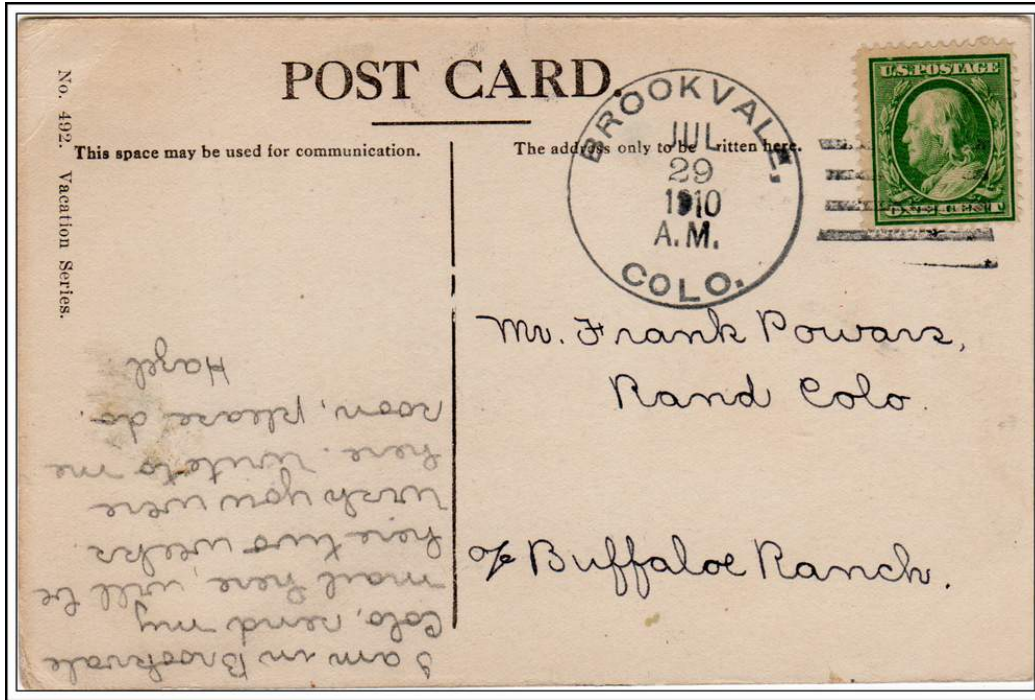 POST CARD.
No. 492. Vacation Series.
This space may be used for communication.
The address only to be written here.
BROOKVALE,
JUL
29
1910
A.M.
COLO.
U.S. POSTAGE
ONE CENT
Mr. Frank Powars,
Rand Colo.
c/o Buffaloe Ranch.
I am in Brookvale
Colo, send my
mail here, will be
here two weeks.
wish you were
here. write to me
soon, please do.
Hazel